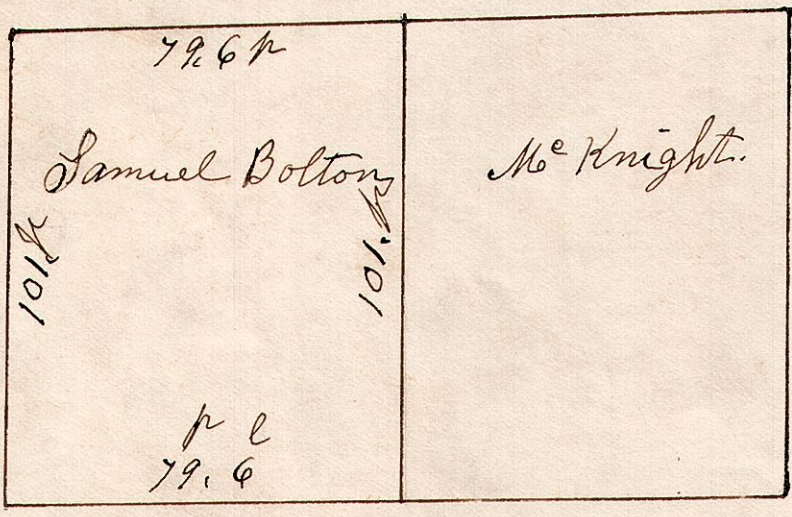 79.6 p
Samuel Bolton
101 p
101. p
p l
79.6
Mc Knight.